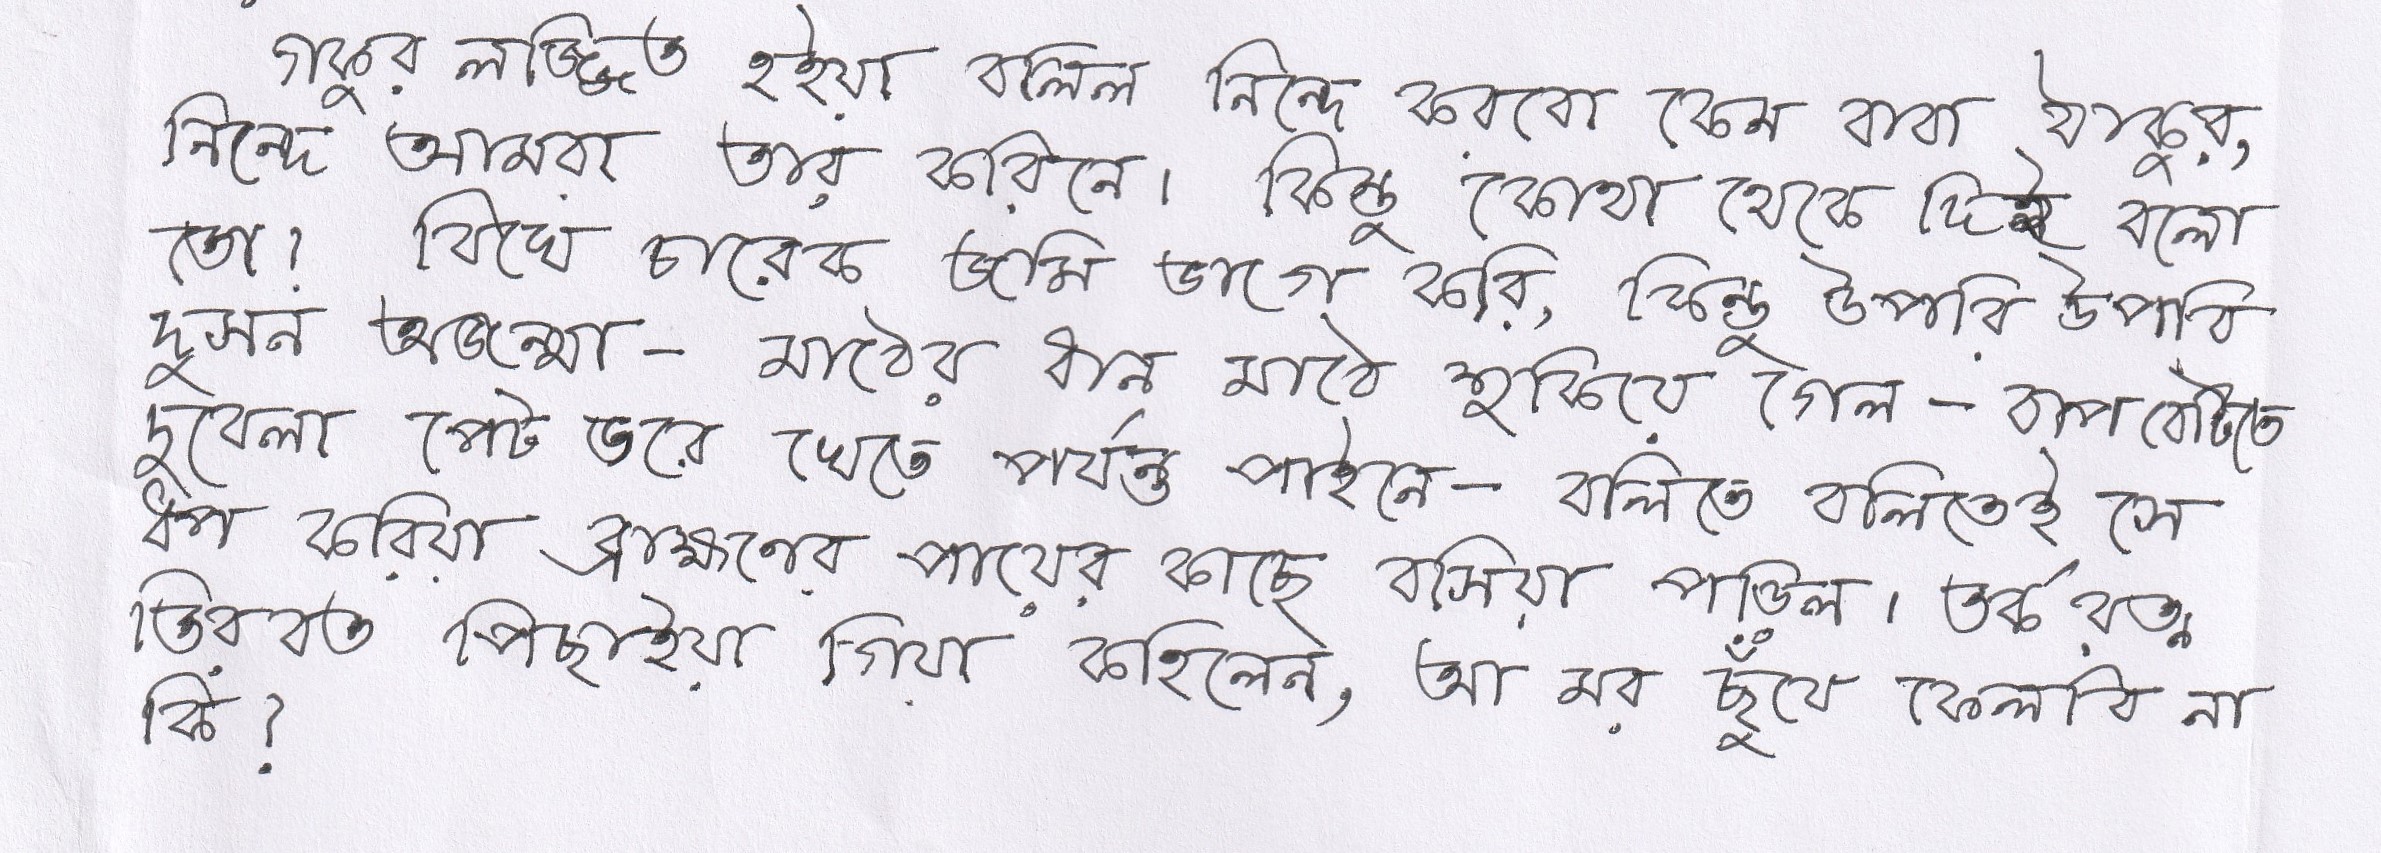 গফুর লজ্জিত হইয়া বলিল নিন্দে করবো কেন বাবা ঠাকুর,
নিন্দে আমরা তার করিনে। কিন্তু কোথা থেকে দিই বলো
তো? বিঘে চারেক জমি ভাগে করি, কিন্তু উপরি উপরি
দুসন অজন্মা - মাঠের ধান মাঠে শুকিয়ে গেল - বাপবেটিতে
দুবেলা পেট ভরে খেতে পর্যন্ত পাইনে - বলিতে বলিতেই সে
ধপ করিয়া ব্রাহ্মণের পায়ের কাছে বসিয়া পড়িল। তর্করত্ন
তিরবত পিছাইয়া গিয়া কহিলেন, আ মর ছুঁয়ে ফেলবি না
কি?